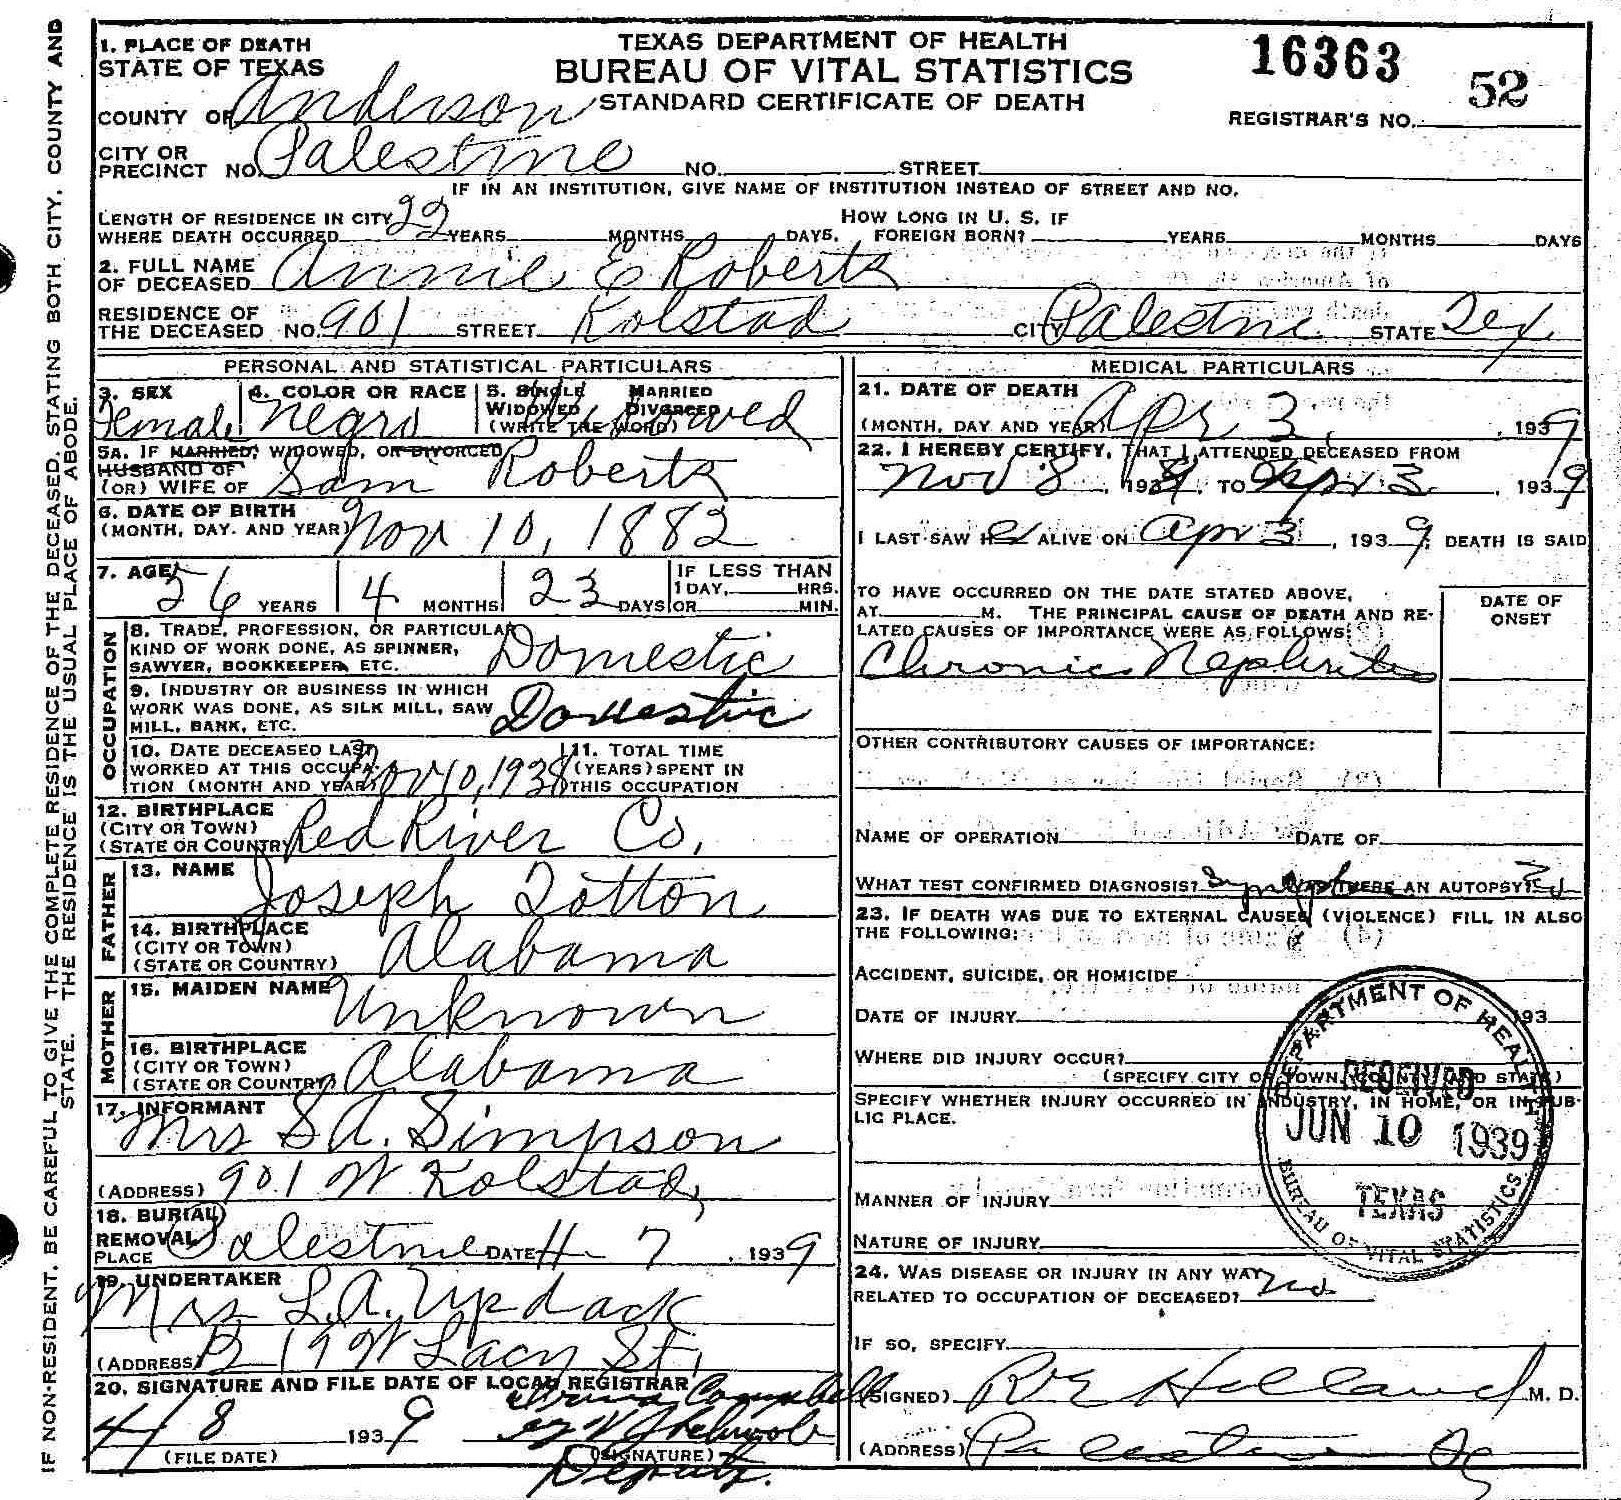 IF NON-RESIDENT, BE CAREFUL TO GIVE THE COMPLETE RESIDENCE OF THE DECEASED, STATING BOTH CITY, COUNTY AND
STATE. THE RESIDENCE IS THE USUAL PLACE OF ABODE.
TEXAS DEPARTMENT OF HEALTH
BUREAU OF VITAL STATISTICS
STANDARD CERTIFICATE OF DEATH
16363
52
REGISTRAR'S NO.
1. PLACE OF DEATH
STATE OF TEXAS
COUNTY OF Anderson
CITY OR
PRECINCT NO. Palestine NO. STREET
IF IN AN INSTITUTION, GIVE NAME OF INSTITUTION INSTEAD OF STREET AND NO.
LENGTH OF RESIDENCE IN CITY HOW LONG IN U. S. IF
WHERE DEATH OCCURRED 22 YEARS MONTHS DAYS. FOREIGN BORN? YEARS MONTHS DAYS
2. FULL NAME
OF DECEASED Annie E Roberts
RESIDENCE OF
THE DECEASED NO. 901 STREET Kolstad CITY Palestine STATE Tex
PERSONAL AND STATISTICAL PARTICULARS
3. SEX 4. COLOR OR RACE 5. SINGLE MARRIED
WIDOWED DIVORCED
(WRITE THE WORD)
Female Negro Widowed
5A. IF MARRIED, WIDOWED, OR DIVORCED
HUSBAND OF
(OR) WIFE OF Sam Roberts
6. DATE OF BIRTH
(MONTH, DAY. AND YEAR) Nov 10, 1882
7. AGE 56 YEARS 4 MONTHS 23 DAYS
IF LESS THAN
1 DAY, HRS.
OR MIN.
OCCUPATION
8. TRADE, PROFESSION, OR PARTICULAR
KIND OF WORK DONE, AS SPINNER,
SAWYER, BOOKKEEPER, ETC. Domestic
9. INDUSTRY OR BUSINESS IN WHICH
WORK WAS DONE, AS SILK MILL, SAW
MILL, BANK, ETC. Domestic
10. DATE DECEASED LAST
WORKED AT THIS OCCUPA-
TION (MONTH AND YEAR) Nov 10, 1938
11. TOTAL TIME
(YEARS) SPENT IN
THIS OCCUPATION
12. BIRTHPLACE
(CITY OR TOWN)
(STATE OR COUNTRY) Red River Co.
FATHER
13. NAME Joseph Totton
14. BIRTHPLACE
(CITY OR TOWN)
(STATE OR COUNTRY) Alabama
MOTHER
15. MAIDEN NAME Unknown
16. BIRTHPLACE
(CITY OR TOWN)
(STATE OR COUNTRY) Alabama
17. INFORMANT
Mrs S A. Simpson
(ADDRESS) 901 W Kolstad,
18. BURIAL
REMOVAL
PLACE Palestine DATE 4-7, 1939
19. UNDERTAKER
Mrs L. A. Updack
(ADDRESS) 19 W Lacy St,
20. SIGNATURE AND FILE DATE OF LOCAL REGISTRAR
4/8 1939 Campbell
(FILE DATE) (SIGNATURE)
Deputy.
MEDICAL PARTICULARS
21. DATE OF DEATH
(MONTH, DAY AND YEAR) Apr 3, , 1939
22. I HEREBY CERTIFY, THAT I ATTENDED DECEASED FROM
Nov 8, 1938, TO Apr 3, 1939
I LAST SAW HER ALIVE ON Apr 3, 1939; DEATH IS SAID
TO HAVE OCCURRED ON THE DATE STATED ABOVE,
AT M. THE PRINCIPAL CAUSE OF DEATH AND RE-
LATED CAUSES OF IMPORTANCE WERE AS FOLLOWS:
DATE OF
ONSET
Chronic Nephritis
OTHER CONTRIBUTORY CAUSES OF IMPORTANCE:
NAME OF OPERATION DATE OF
WHAT TEST CONFIRMED DIAGNOSIS? THERE AN AUTOPSY?
23. IF DEATH WAS DUE TO EXTERNAL CAUSES (VIOLENCE) FILL IN ALSO
THE FOLLOWING:
ACCIDENT, SUICIDE, OR HOMICIDE
DATE OF INJURY 193
WHERE DID INJURY OCCUR?
(SPECIFY CITY OR TOWN, COUNTY AND STATE)
SPECIFY WHETHER INJURY OCCURRED IN INDUSTRY, IN HOME, OR IN PUB-
LIC PLACE.
MANNER OF INJURY
NATURE OF INJURY
DEPARTMENT OF HEALTH
RECEIVED
JUN 10 1939
TEXAS
BUREAU OF VITAL STATISTICS
24. WAS DISEASE OR INJURY IN ANY WAY
RELATED TO OCCUPATION OF DECEASED? no
IF SO, SPECIFY
(SIGNED) R E Holland M. D.
(ADDRESS) Palestine